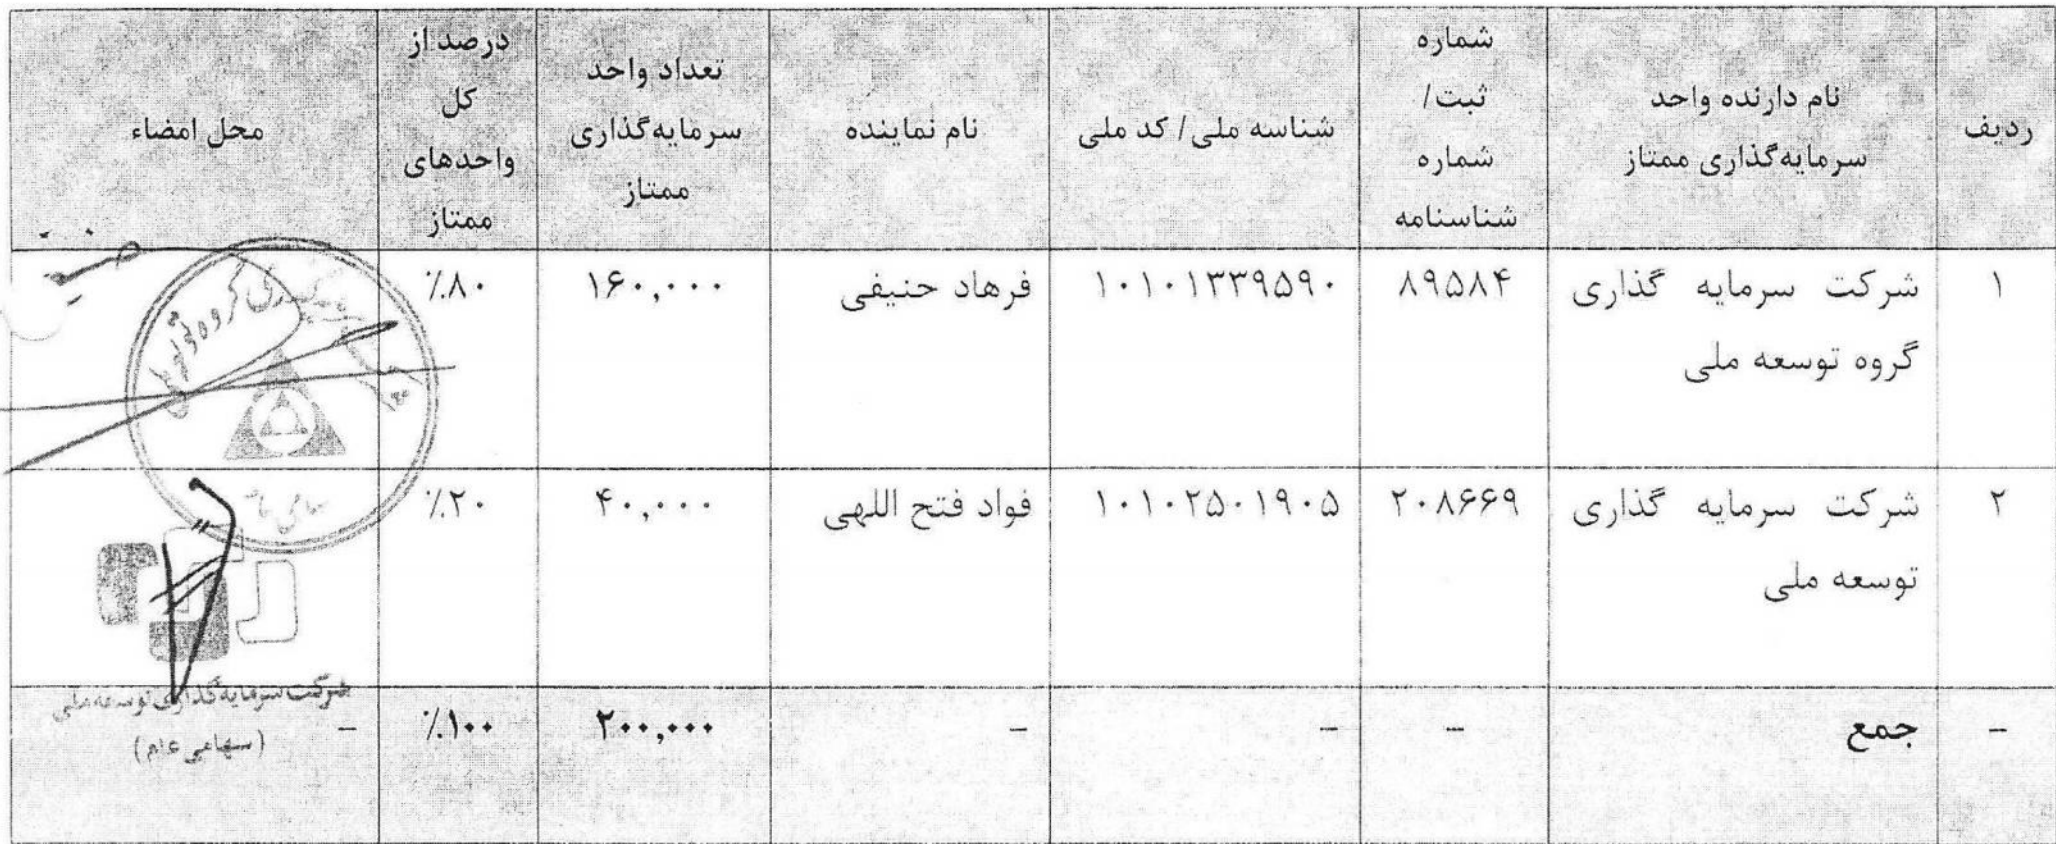 ردیف
نام دارنده واحد
سرمایه‌گذاری ممتاز
شماره
ثبت/
شماره
شناسنامه
شناسه ملی/ کد ملی
نام نماینده
تعداد واحد
سرمایه‌گذاری
ممتاز
درصد از
کل
واحدهای
ممتاز
محل امضاء
۱
شرکت سرمایه گذاری
گروه توسعه ملی
۸۹۵۸۴
۱۰۱۰۱۳۳۹۵۹۰
فرهاد حنیفی
۱۶۰,۰۰۰
٪۸۰
۲
شرکت سرمایه گذاری
توسعه ملی
۲۰۸۶۶۹
۱۰۱۰۲۵۰۱۹۰۵
فواد فتح اللهی
۴۰,۰۰۰
٪۲۰
شرکت سرمایه‌گذاری توسعه ملی
(سهامی عام)
–
جمع
–
–
–
۲۰۰,۰۰۰
٪۱۰۰
–